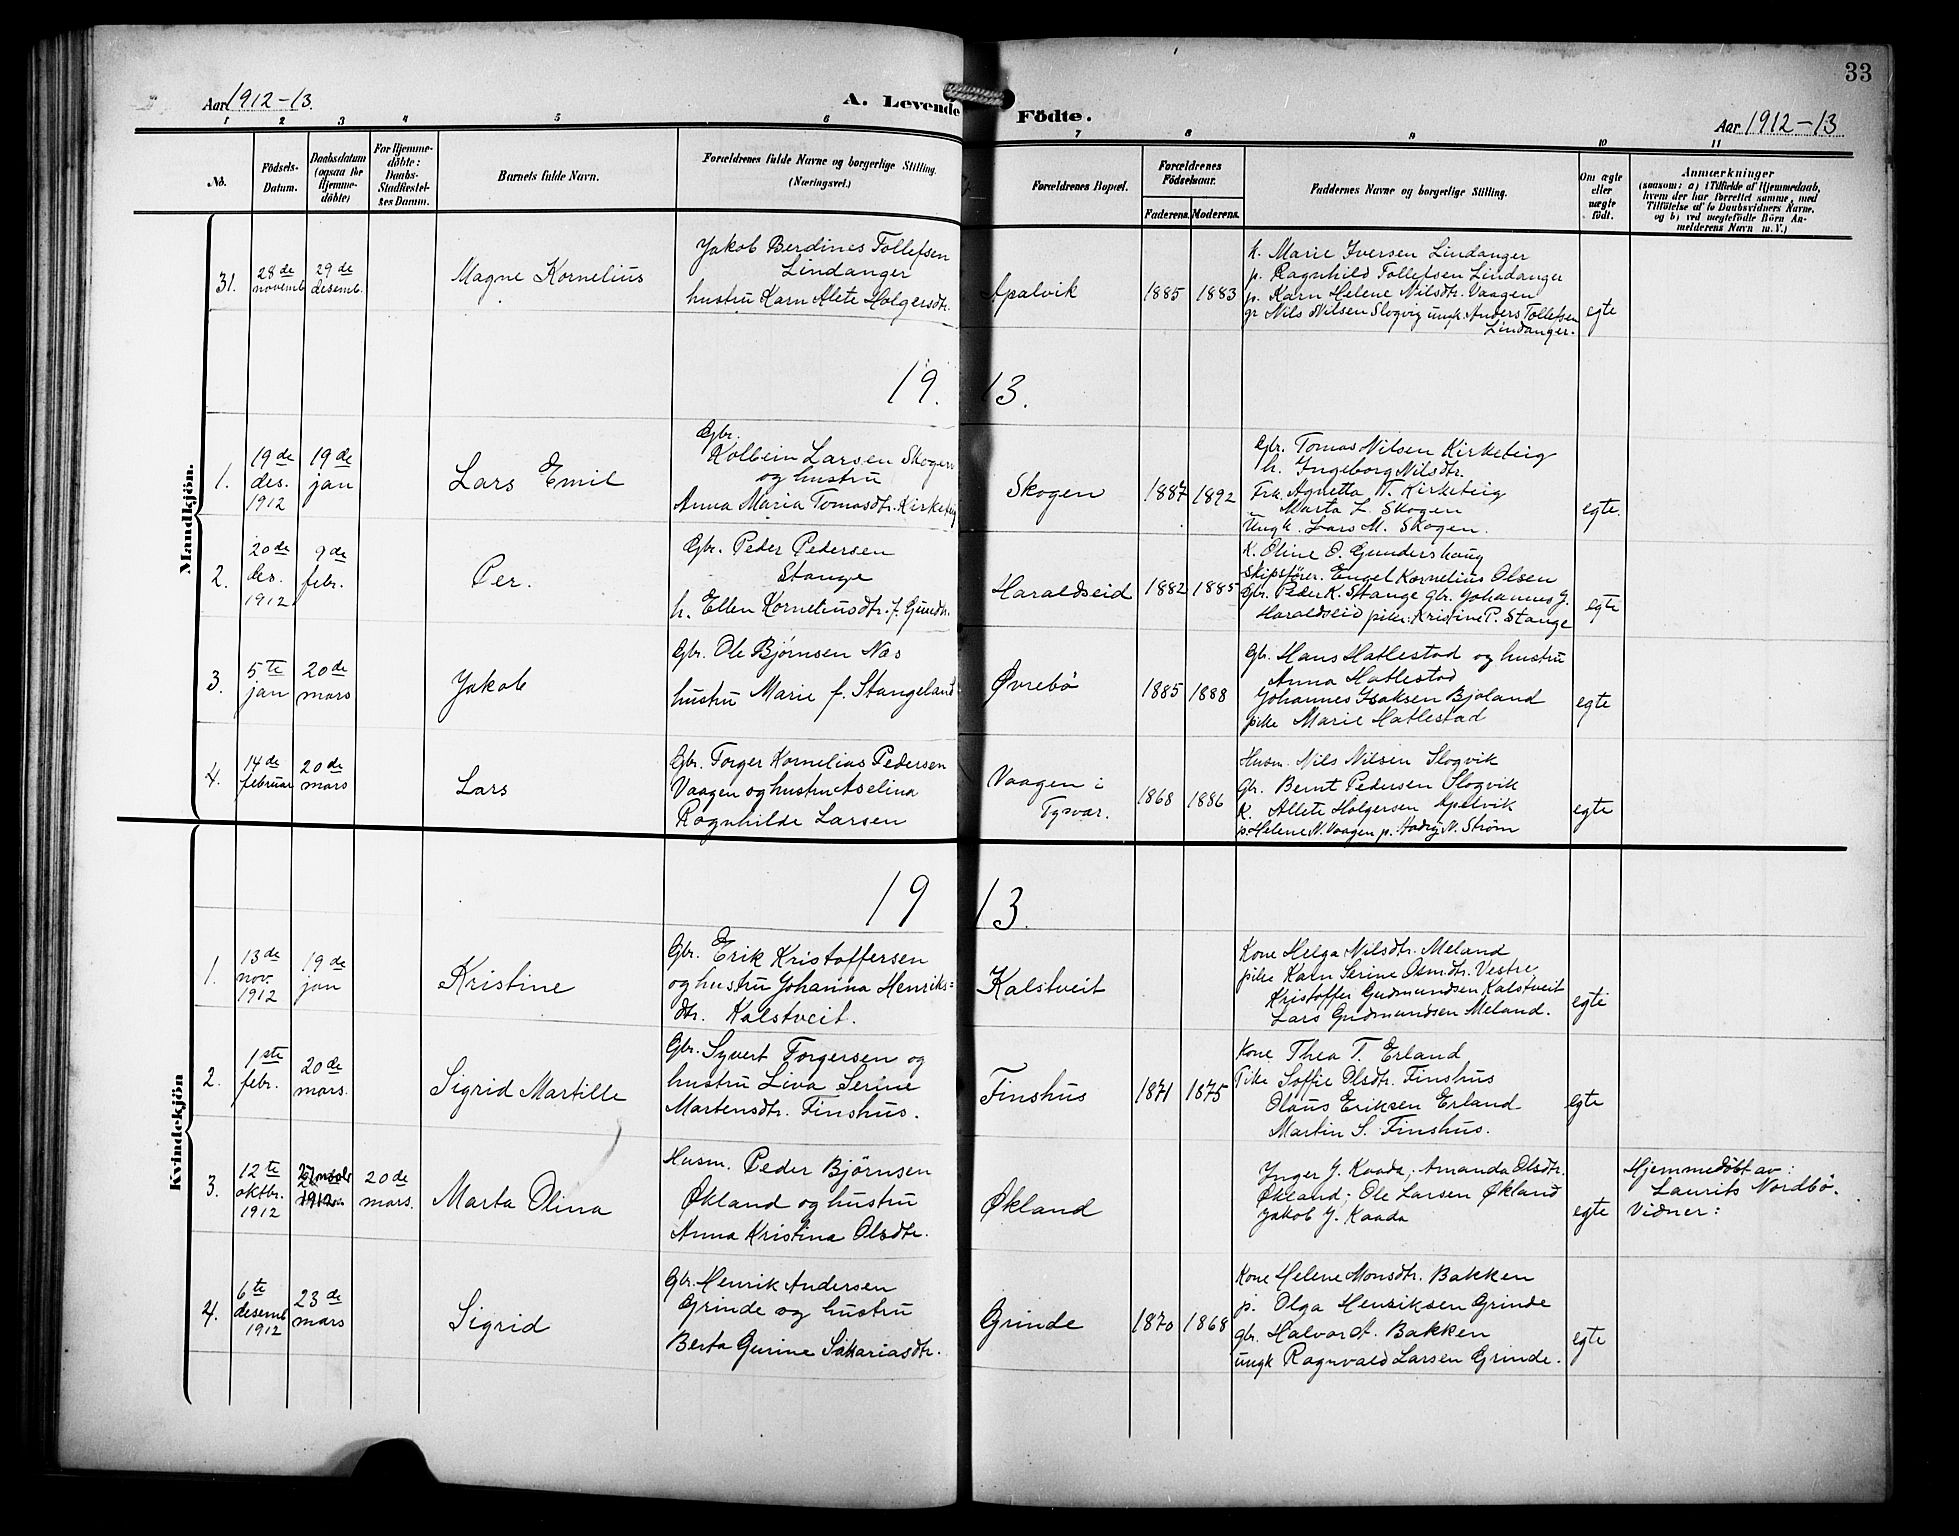 33
Aar 1912-13.
A. Levende Födte.
Aar 1912-13
1 2 3 4 5 6 7 8 9 10 11
No.
Födsels-
Datum.
Daabsdatum
(ogsaa for
Hjemme-
döbte)
For Hjemme-
döbte:
Daabs-
Stadfæstel-
ses Datum.
Barnets fulde Navn.
Forældrenes fulde Navne og borgerlige Stilling.
(Næringsvei.)
Forældrenes Bopæl.
Forældrenes
Födselsaar.
Faderens. Moderens.
Faddernes Navne og borgerlige Stilling.
Om ægte
eller
uægte
födt.
Anmærkninger
(saasom: a) i Tilfælde af Hjemmedaab,
hvem der har forrettet samme, med
Tilföielse af to Daabsvidners Navne,
og b) ved uægtefödte Börn An-
melderens Navn m. V.)
Mandkjön.
31.
28de
novemb.
29de
desemb.
Magne Kornelius
Jakob Berdines Tollefsen
Lindanger
hustru Karn Alete Holgersdtr.
Apalvik
1885
1883
k. Marie Iversen Lindanger
p. Ragnhild Tollefsen Lindanger
p. Karn Helene Nilsdtr. Vaagen
gr. Nils Nilsen Slogvig ungk. Anders Tollefsen
Lindanger.
egte
19. 13.
1.
19de
des.
1912
19de
jan
Lars Emil
Gbr.
Kolbein Larsen Skogen
og hustru
Anna Maria Tomasdtr. Kirketeig
Skogen
1887
1892
Gbr. Tomas Nilsen Kirketeig
h. Ingeborg Nilsdtr.
Frk. Agnetta T. Kirketeig
Marta L. Skogen
Ungk. Lars M. Skogen.
egte.
2.
20de
des.
1912
9de
febr.
Per.
Gbr. Peder Pedersen
Stange
h. Ellen Korneliusdtr. f. Gundh.
Haraldseid
1882
1885
K. Oline O. Gundershaug
Skipsfører. Engel Kornelius Olsen
Gbr. Peder K. Stange Gbr. Johannes J.
Haraldseid pike: Kristine P. Stange
egte
3.
5te
jan
20de
mars
Jakob
Gbr. Ole Bjørnsen Nes
hustru Marie f. Stangeland
Øvrebö
1885
1888
Gbr. Hans Hatlestad og hustru
Anna Hatlestad
Johannes Isaksen Bjoland
pike Marie Hatlestad
egte
4.
14de
februar
20de
mars
Lars
Gbr. Torger Kornelias Pedersen
Vaagen og hustru Aselina
Ragnhilde Larsen
Vaagen i
Tysvar.
1868
1886
Husm. Nils Nilsen Slogvik
Gbr. Bernt Pedersen Slogvik
K. Allete Holgersen Apalvik
p. Helene N. Vaagen p. N. Strøm
egte
Kvindekjön
19 13.
1.
13de
nov.
1912
19de
jan
Kristine
Gbr. Erik Kristoffersen
og hustru Johanna Henriks=
dtr. Kalstveit.
Kalstveit
Kone Helga Nilsdtr. Meland
pike Karn Serine Osmdtr. Vestre,
Kristoffer Gudmundsen Kalstveit
Lars Gudmundsen Meland.
egte
2.
1ste
febr.
20de
mars.
Sigrid Martille
Gbr. Syvert Torgersen og
hustru Liva Serine
Martensdtr. Finshus.
Finshus
1871
1875
Kone Thea T. Erland
Pike Soffie Olsdtr. Finshus
Olaus Eriksen Erland
Martin S. Finshus.
egte
3.
12te
oktbr.
1912
1912
20de
mars.
Marta Olina
Husm. Peder Bjørnsen
Økland og hustru
Anna Kristina Olsdtr.
Økland
Inger J. Kaada; Amanda Olsdtr.
Økland; Ole Larsen Økland
Jakob J. Kaada
egte
Hjemmedøbt av:
Laurits Nordbö.
Vidner:
4.
6te
desemb.
1912
23de
mars
Sigrid
Gbr. Henrik Andersen
Grinde og hustru
Berta Gurine Sakariasdtr.
Grinde
1870
1868
Kone Helene Monsdtr. Bakken
p. Olga Henriksen Grinde
gbr. Halvor A. Bakken
ungk Ragnvald Larsen Grinde.
egte